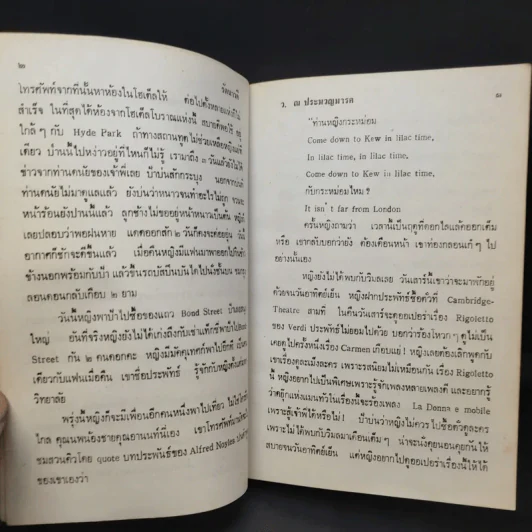 ๒
รัตนาวดี
โทรศัพท์จากที่นั้นหาห้องในโฮเต็ลให้ ต่อไปตั้งหลายแห่งก็ไม่
สำเร็จ ในที่สุดได้ห้องจากโฮเต็ลโบราณแห่งนี้ สบายดีพอใช้ อยู่
ใกล้ๆ กับ Hyde Park ถ้าทางสถานทูตไม่ช่วยเหลือหญิงแย่
เดียว ป่านนี้ไปเหง่าวอยู่ที่ไหนก็ไม่รู้ เรามาถึง ๓ วันแล้วยังไม่ได้
ข่าวจากท่านดนัยของเจ้าพี่เลย ป้าบ่นลักกระบุง นอกจากบ่นที่
ท่านดนัยไม่มาดูแลแล้ว ยังบ่นว่าหนาวจนทำอะไรไม่ถูก
หน้าร้อนยังปานนี้แล้ว ลูกช้างไม่ขออยู่หน้าหนาวเป็นอัน หญิงก็
เลยปลอบว่าพอฝนหาย แดดออกสัก ๒ วันก็คงจะค่อยอุ่น วันนี้
อากาศก็ชักจะดีขึ้นแล้ว เมื่อคืนหญิงมีแฟนมาพาออกไปกินข้าว
ข้างนอกพร้อมกับป้า แล้วขึ้นรถบัสปีนบันไดไปนั่งชั้นบน
ลอนดอนกลับเกือบ ๒ ยาม
วันนี้หญิงพาป้าไปซื้อของแถว Bond Street ป้า
ใหญ่ อันที่จริงหญิงยังไม่ได้เก่งถึงกับเช่าแท็กซี่พาป้าไป Bond
Street กัน ๒ คนดอกคะ หญิงมีมัคคุเทศก์พาไปอีกที เป็นคน
เดียวกับแฟนเมื่อคืน เขาชื่อประพัทธ์ รู้จักกับหญิงตั้งแต่
วิทยาลัย
พรุ่งนี้หญิงก็จะมีเพื่อนอีกคนหนึ่งพาไปเที่ยว ไม่ใช่
ไกล คุณพนัองชายคุณอานนท์นี่เอง เขาโทรศัพท์มา
ชมสวนคิวโดย quote บทประพันธ์ของ Alfred Noyes
ของเขาเองว่า
ว. ณ ประมวญมารค
๓
"ท่านหญิงกระหม่อม
Come down to Kew in lilac time,
In lilac time, in lilac time,
Come down to Kew in lilac time,
กับกระหม่อมไหม ?
It isn't far from London
ครั้นหญิงถามว่า เวลานี้เป็นฤดูที่ดอกไลแล็คออกเต็ม
หรือ เขากลับบอกว่ายัง ต้องเดือนหน้า เขาท่องกลอนเก๋ ๆ ไป
อย่างนั้นเอง
หญิงยังไม่ได้พบกับวิมลเลย วันเสาร์นี้เขาว่าจะมาพักอยู่
ด้วยจนวันอาทิตย์เย็น หญิงฝากประพัทธ์ซื้อตั๋วที่ Cambridge-
Theatre สามที่ ในคืนวันเสาร์จะดูออเปร่าเรื่อง Rigoletto
ของ Verdi ประพัทธ์ไม่ยอมไปด้วย บอกว่าร้องโหวก ๆ ดูไม่เป็น
เคยดูไปครั้งหนึ่งเรื่อง Carmen เกือบแย่ ! หญิงเลยต้องเลิกพูดกับ
เขาเรื่องดูละเม็งละคร เพราะรสนิยมไม่เหมือนกัน เรื่อง Rigoletto
นี้ หญิงอยากไปเป็นพิเศษเพราะรู้จักเพลงหลายเพลงดี และอยากรู้
ว่าดยุ๊กแห่งแมนทัวในเรื่องนี้จะร้องเพลง La Donna e mobile
เพราะสู้เจ้าพี่ได้หรือไม่ ! ป้าบ่นว่าหญิงไม่ควรไปซื้อตั๋วดูละคร
เพราะไม่ได้พบกับวิมลมาเดือนเต็ม ๆ น่าจะนั่งคุยนอนคุยกันให้
สบายจนวันอาทิตย์เย็น แต่หญิงอยากไปดูออเปร่าเรื่องนี้ให้ได้